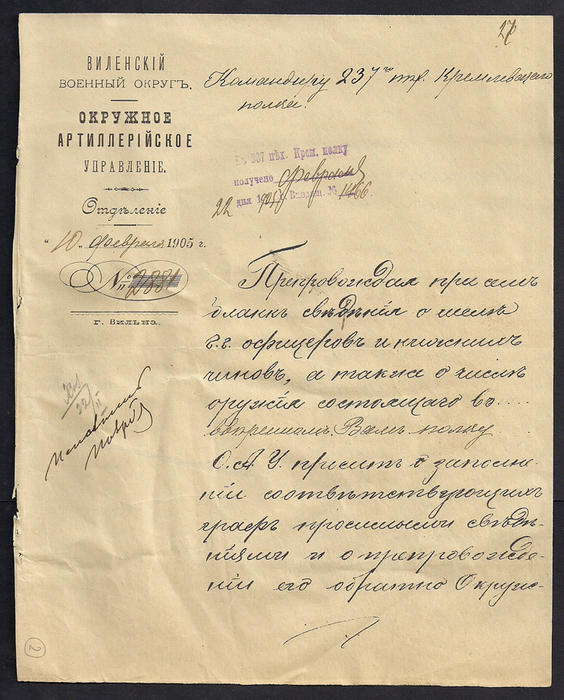 27
ВИЛЕНСКІЙ
ВОЕННЫЙ ОКРУГЪ.
ОКРУЖНОЕ
АРТИЛЛЕРІЙСКОЕ
УПРАВЛЕНІЕ.
Отдѣленіе
"10" февраля 1905 г.
№ 2881
г. Вильна.
Командиру 237го пѣх. Кремлевскаго
полка.
237 пѣх. Крем. полку
получено Февраля
22 дня 190 г. Входящ. № 1466.
Препровождая при семъ
бланкъ свѣдѣнія о числѣ
г.г. офицеровъ и нижнихъ
чиновъ, а также о числѣ
оружія состоящаго во....
ввѣренномъ Вамъ полку
О.А.У. проситъ о заполне-
ніи соотвѣтствующихъ
графъ просимыми свѣдѣ-
ніями и о препровожде-
ніи его обратно Окруж-
22/II
2